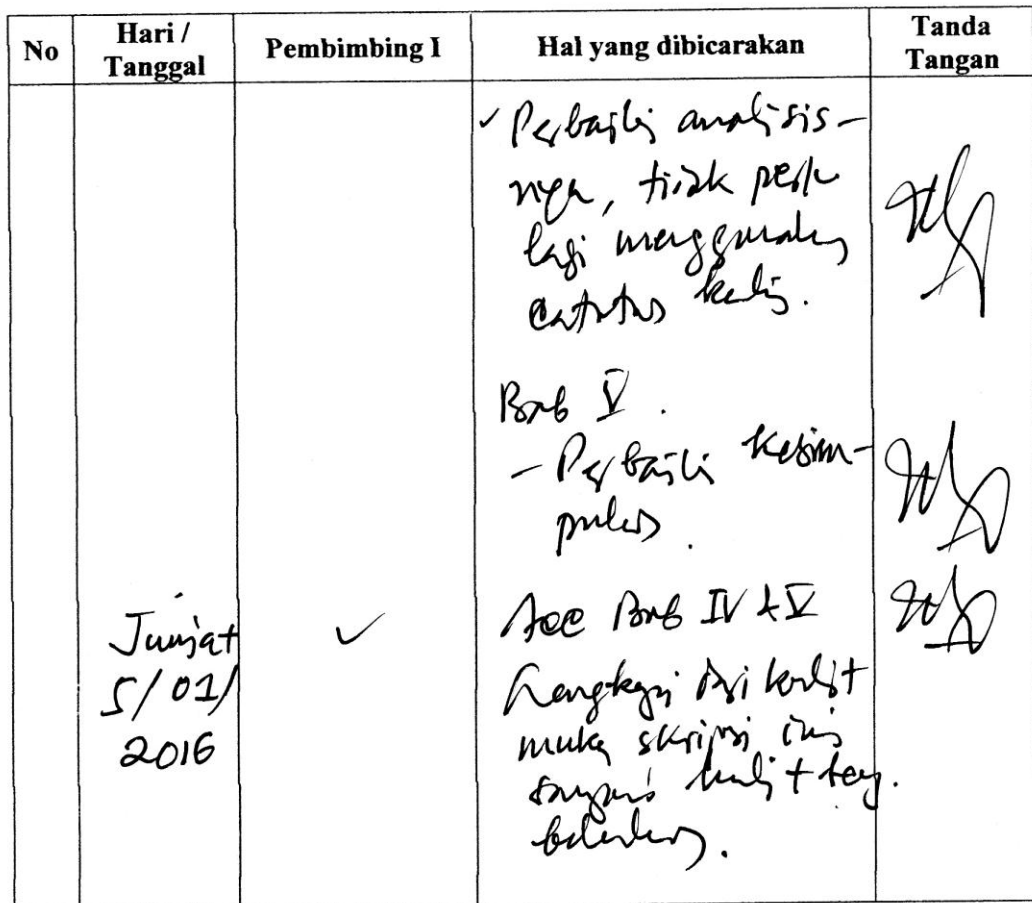 No
Hari /
Tanggal
Pembimbing I
Hal yang dibicarakan
Tanda
Tangan
✓ Perbaiki analisis-
nya, tidak perlu
lagi menggunakan
catatan kaki.
Bab V.
- Perbaiki kesim-
pulan.
Jum'at
5/01/
2016
✓
Acc Bab IV & V
Lengkapi dari kulit
muka skripsi ini
sampai kulit
belakang.